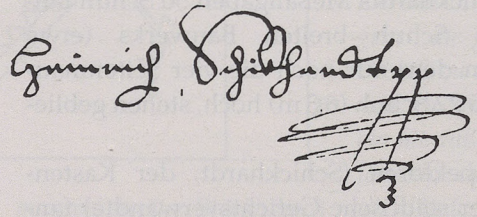 Heinrich Schikhardt pp